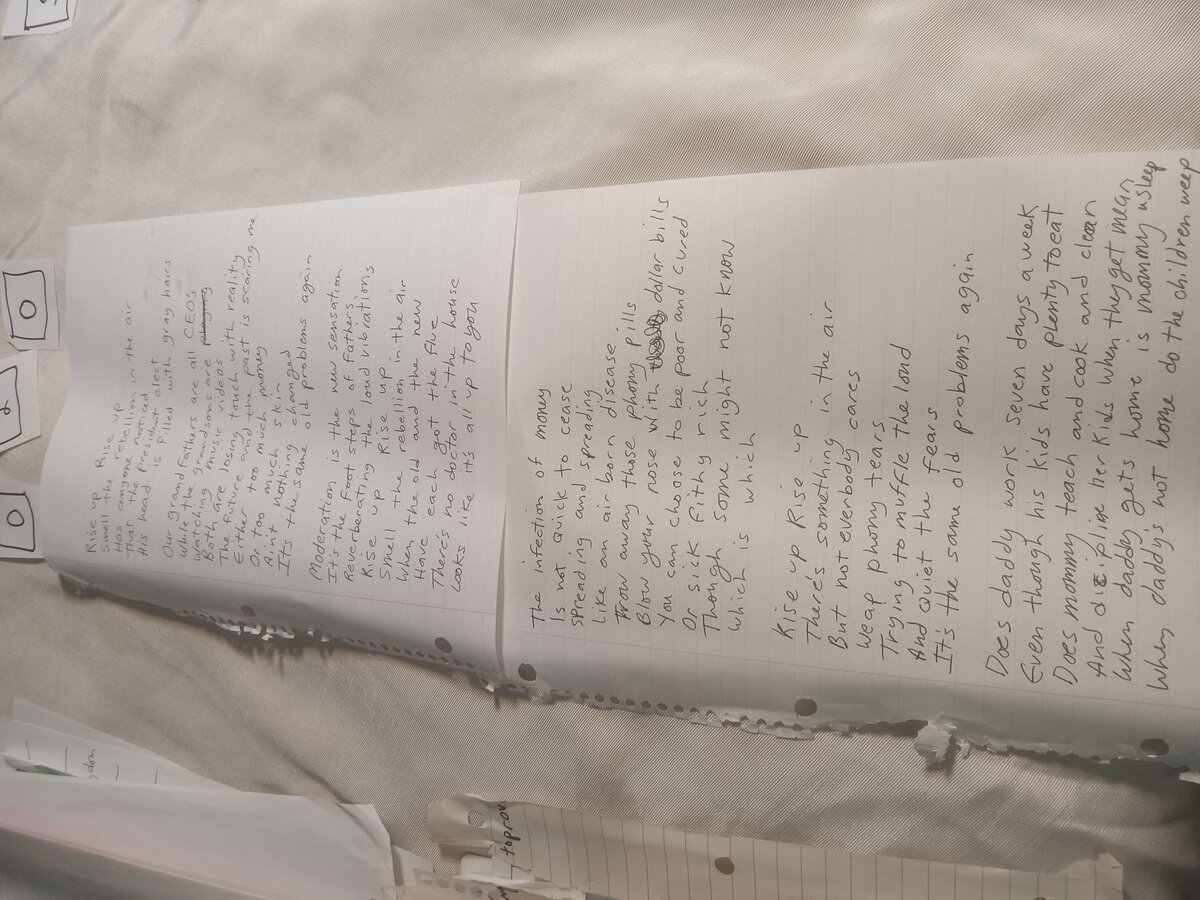 Rise up Rise up
Smell the
Has anyone rebellion in the air
That the president elect noticed
His head is filled with gray hairs
Our grandfathers are all CEO's
While the fathers are
Watching grandsons are playing
Both are music videos
The future losing touch with reality
Either and the past is scaring me
Or too much money
Ain't too much skin
It's nothing changed
the same old problems again
Moderation is the new sensation
It's the foot steps of fathers
Reverberating the loud vibirations
Rise up Rise up
Smell the rebellion in the air
When the old and the new
Have each got the flue
There's no doctor in the house
Looks like it's all up to you
The infection of money
Is not quick to cease
Spreading and spreading
Like an air born disease
Trow away those phony pills
Blow your nose with dollar bills
You can choose to be poor and cured
Or sick filthy rich
Though some might not know
which is which
Rise up Rise up
There's something in the air
But not everbody cares
Weap phony tears
Trying to muffle the loud
And quiet the fears
It's the same old problems again
Does daddy work seven days a week
Even though his kids have plenty to eat
Does mommy teach and cook and clean
And disipline her kids when they get mean
When daddy gets home is mommy asleep
When daddy's not home do the children weep
gdom
toprov